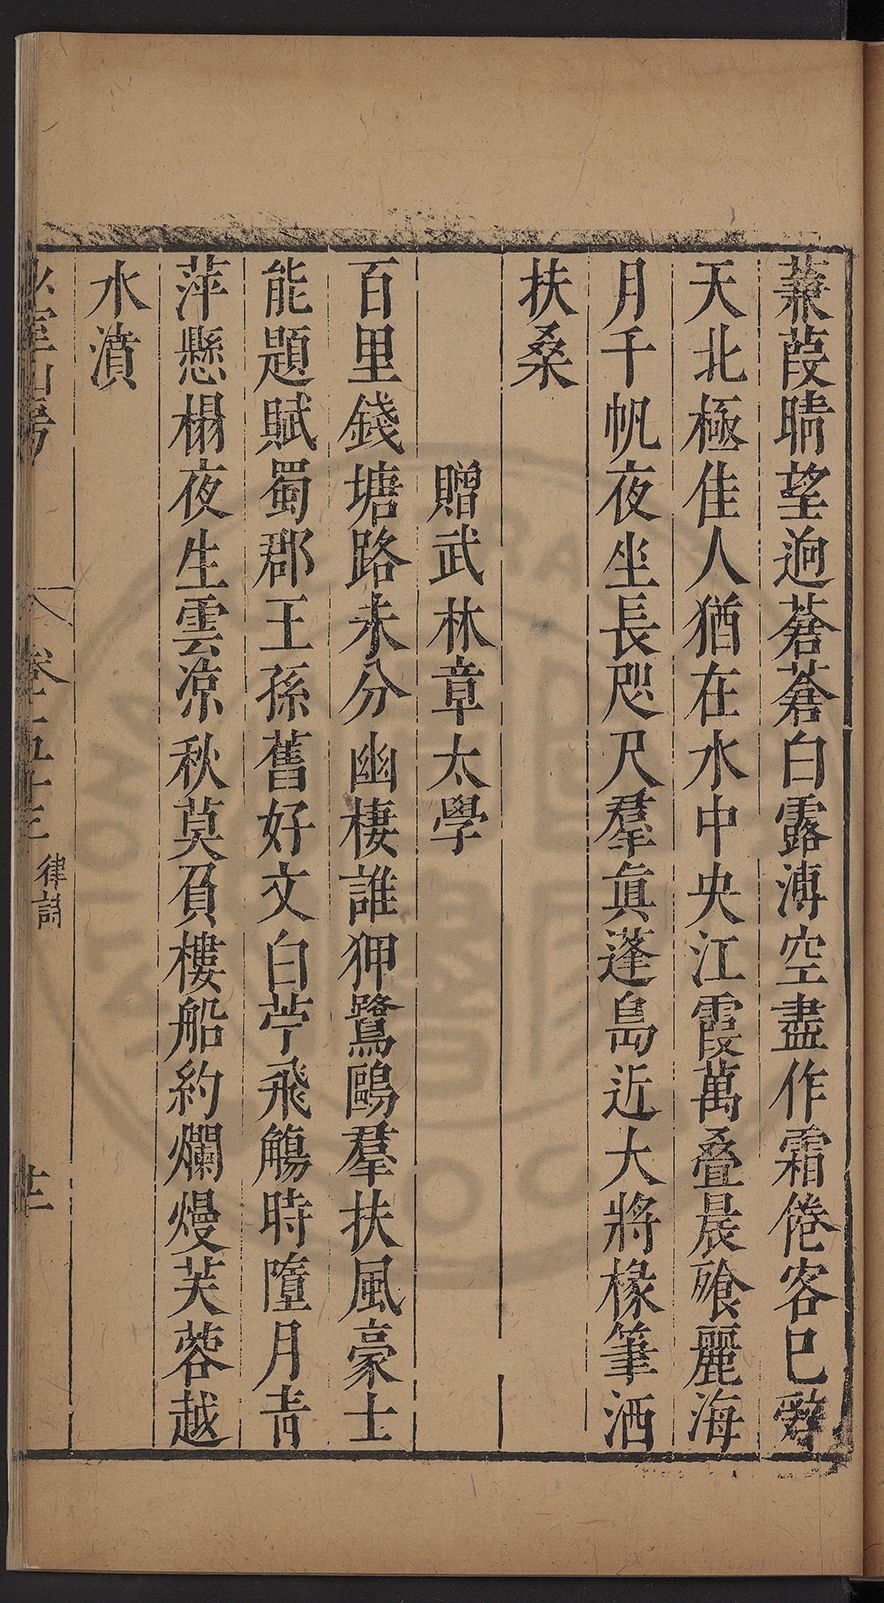 蒹葭晴望逈蒼蒼白露漙空盡作霜倦客巳辭
天北極佳人猶在水中央江霞萬叠晨飱麗海
月千帆夜坐長咫尺羣眞蓬島近大將椽筆洒
扶桑
贈武林章太學
百里錢塘路未分幽棲誰狎鷺鷗羣扶風豪士
能題賦蜀郡王孫舊好文白苧飛觴時墮月青
萍懸榻夜生雲凉秋莫負樓船約爛熳芙蓉越
水濱
山房
卷之五十三
律詩